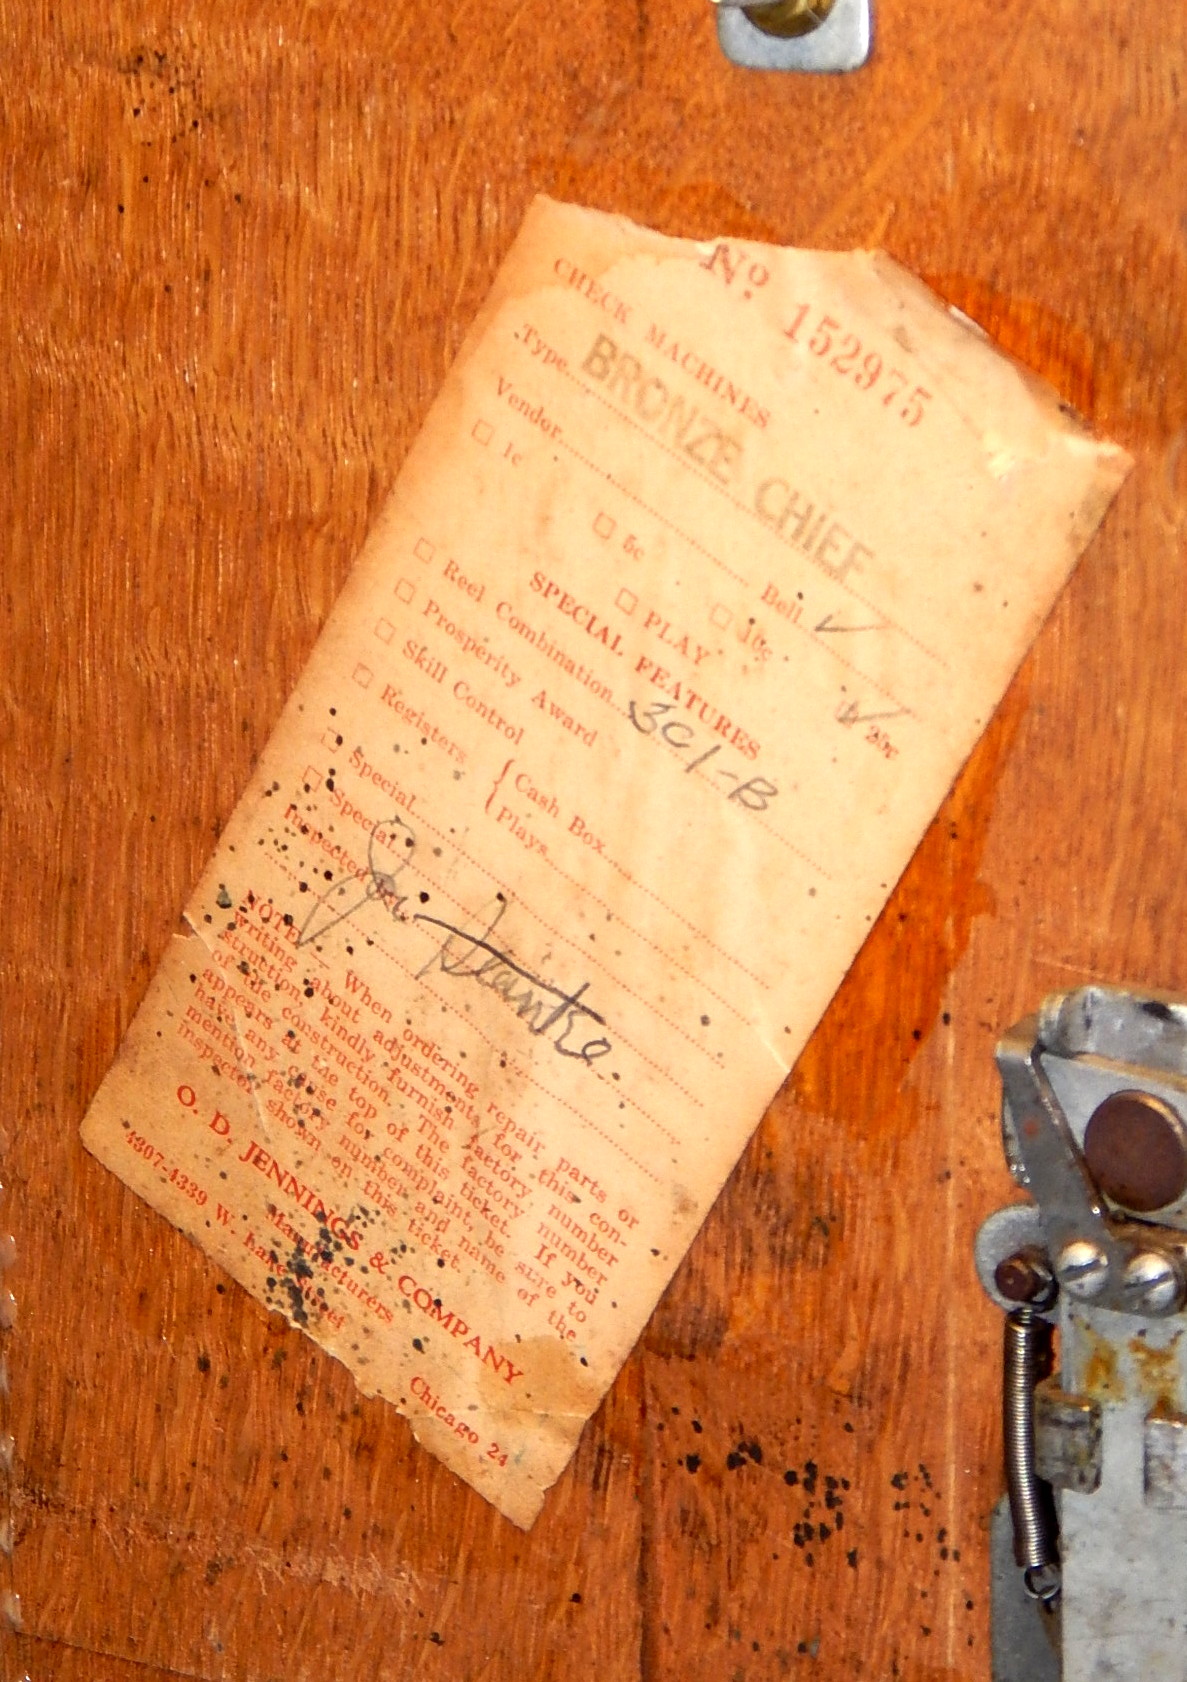 No 152975
CHECK MACHINES
Type BRONZE CHIEF
Vendor Bell ✓
1c 5c 10c ✓ 25c
PLAY
SPECIAL FEATURES
Reel Combination 3C1-B
Prosperity Award
Skill Control
Registers { Cash Box
Plays
Special
Special
Inspected
NOTE — When ordering repair parts or
writing about adjustments for this con-
struction, kindly furnish factory number
of the construction. The factory number
appears at the top of this ticket. If you
have any cause for complaint, be sure to
mention factory number and name of the
inspector shown on this ticket.
O. D. JENNINGS & COMPANY
Manufacturers
4307-4339 W. Lake Street Chicago 24